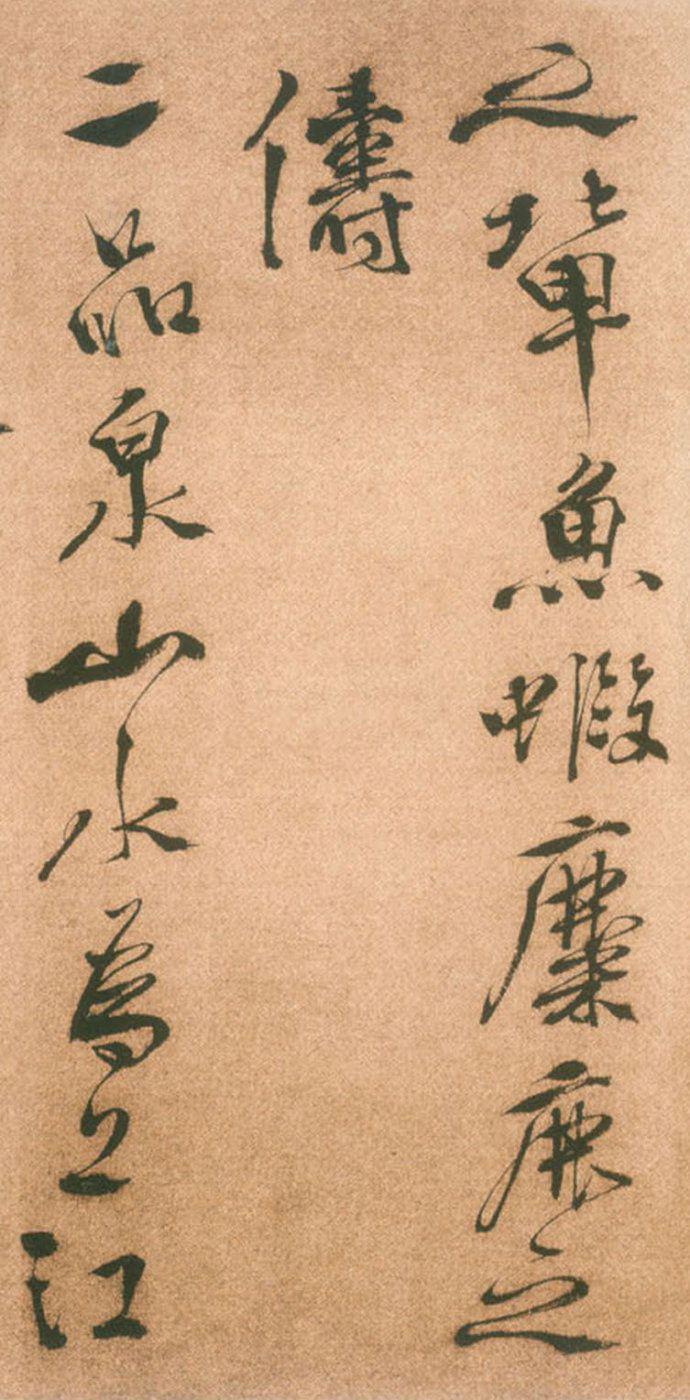 之輩魚蝦麋鹿之
儔
二品泉山水為上江